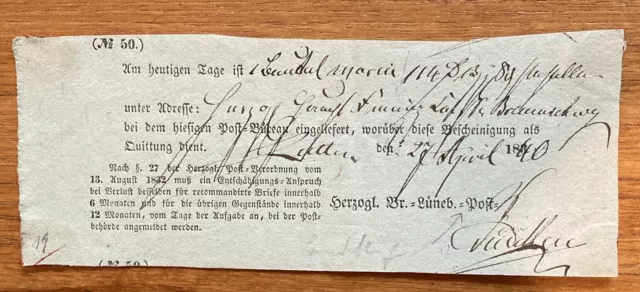 (№ 50.)
Am heutigen Tage ist 1 Beutel worin 114
unter Adresse: Herzogl. Braunschweig
bei dem hiesigen Post-Büreau eingeliefert, worüber diese Bescheinigung als
Quittung dient. den 27 April 1840
Nach § 27 der Herzogl. Post-Verordnung vom
13. August 1832 muß ein Entschädigungs-Anspruch
bei Verlust desselben für recommandirte Briefe innerhalb
6 Monaten und für die übrigen Gegenstände innerhalb
12 Monaten, vom Tage der Aufgabe an, bei der Post-
behörde angemeldet werden.
Herzogl. Br.-Lüneb.-Post-
19
(№ 50.)